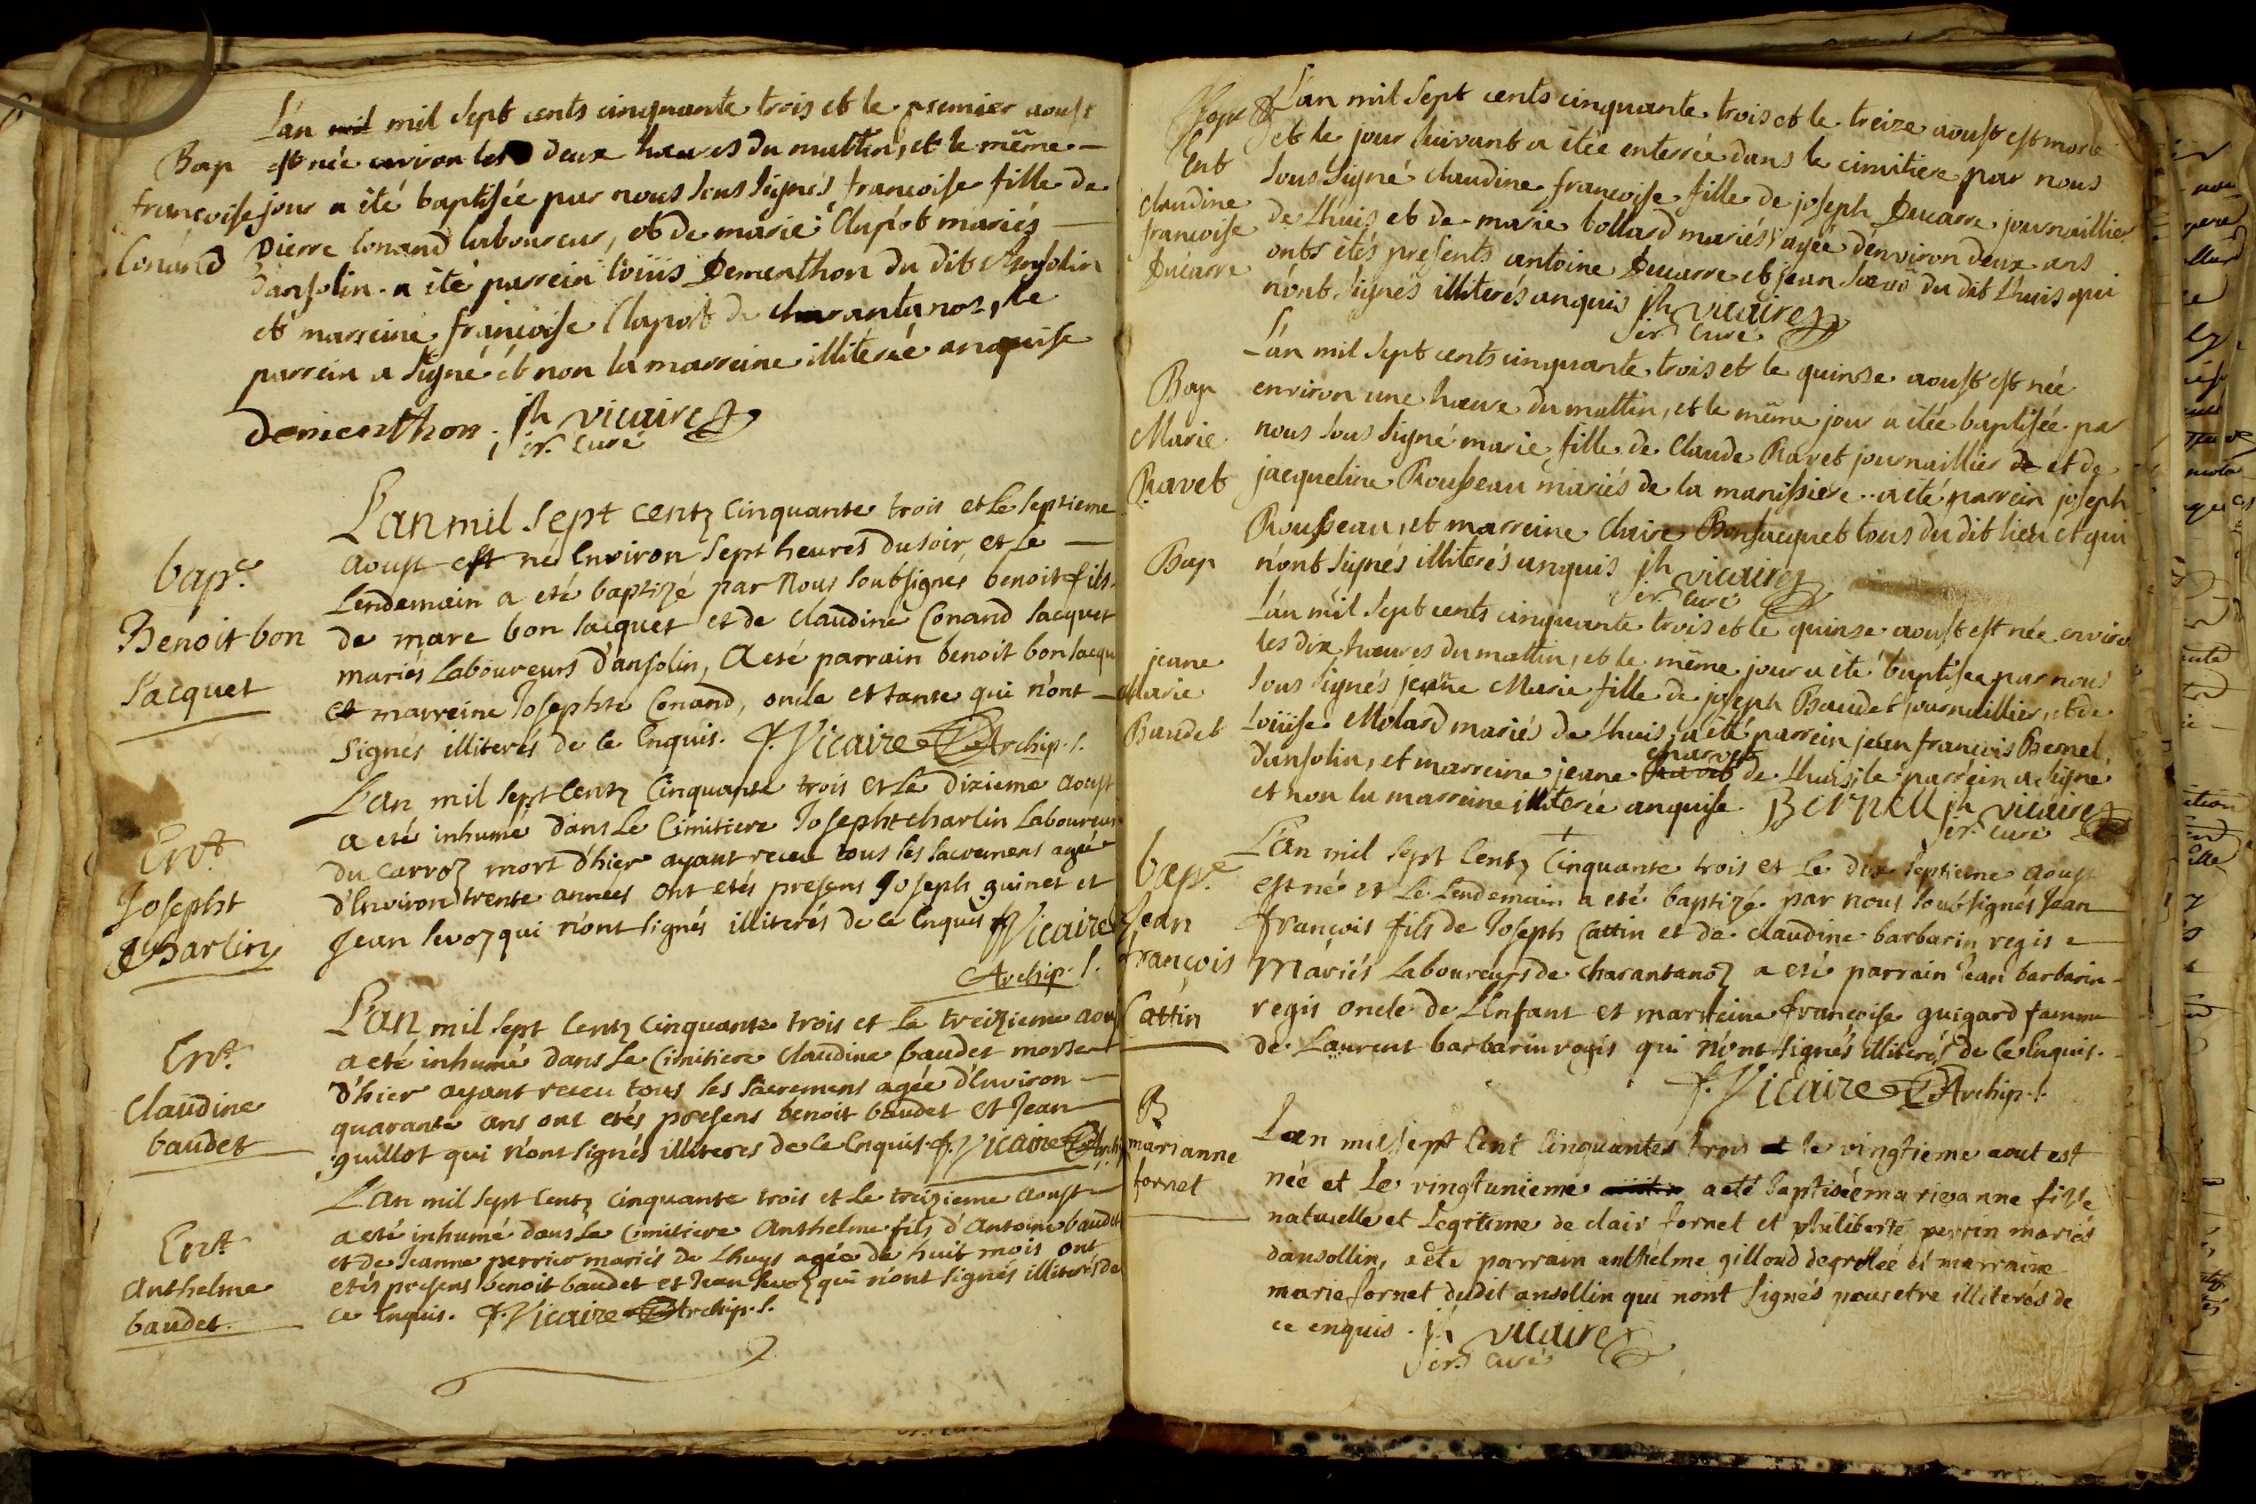 L'an mil mil sept cents cinquante trois et le premier aoust
Bap est née environ les deux heures du mattin, et le même
françoise jour a ité baptisée par nous sous signés françoise fille de
Conand pierre Conand laboureur, et de marie Claport mariés
d'ansolin. a ité parrein loüis Dementhon du dit Ansolin
et marreine françoise Claport de charantanos, le
parrein a signé et non la marreine illiterée anquise
Dementhon. jh vicaire
ser. curé
L'an mil sept centz Cinquante trois et Le septieme
aoust est né Environ sept heures du soir, et Le
bap.e Lendemain a eté baptizé par Nous soubsignés benoit fils
Benoit bon de marc bon jacquet et de Claudine Conand Jacquet
Jacquet mariés Laboureurs d'ansolin, A eté parrain benoit bon Jacqu
et marreine Josephte Conand, oncle et tante qui n'ont
signés illiterés de ce Enquis. f. Vicaire Archip.!
L'an mil sept Centz Cinquante trois et Le dixieme aoust
Ent. a eté inhumé dans Le Cimitiere Josepht charlin Laboureur
Josepht du Carroz mort d'hier ayant receu tous les sacremens agé
Charlin d'Environ trente années ont etés presens Joseph guinet et
Jean sevoz qui n'ont signés illiterés de ce Enquis f. Vicaire
Archip.!
L'an mil sept Centz Cinquante trois et Le treizieme aou
Ent. a eté inhumé dans Le Cimitiere Claudine baudet morte
Claudine d'hier ayant receu tous les sacremens agée d'Environ
baudet quarante ans ont etés presens benoit baudet et Jean
guillot qui n'ont signés illiteres de ce Enquis. f. Vicaire Archip
L'an mil sept Centz Cinquante trois et Le treizieme aoust
Ent. a eté inhumé dans Le Cimitiere Anthelme fils d'Antoine baudet
Anthelme et de Jeanne perrier mariés de Lhuys agée de huit mois ont
baudet. etés presens benoit baudet et Jean sevoz qui n'ont signés illiterés de
ce Enquis. f. Vicaire Archip.!
L'an mil sept cents cinquante trois et le treize aoust est morte
Ent et le jour suivant a itée enterrée dans le cimitiere par nous
claudine sous signé claudine françoise fille de joseph Ducarre journaillier
françoise de Lhuis et de marie tollard mariés, agée d'environ deux ans
Ducarre onts étés presents antoine Ducarre et jean Sevo du dit Lhuis qui
n'ont signés illiterés anquis jh vicaire
ser. curé
L'an mil sept cents cinquante trois et le quinse aoust est née
Bap environ une heure du mattin, et le même jour a itée baptisée par
Marie nous sous signé marie, fille de Claude Ravet journaillier de et de
Ravet jacqueline Rousseau mariés de la manissiere.. a ité parrein joseph
Rousseau, et marreine claire Bonjacquet tous du dit lieu et qui
Bap n'ont signés illiterés anquis jh vicaire
ser. curé
L'an mil sept cents cinquante trois et le quinse aoust est née enviro
les dix heures du mattin, et le même jour a ité baptisée par nous
jeane sous signés jeanne Marie fille de joseph Baudet journaillier, et de
Marie Loüise Molard mariés de Lhuis, a ité parrein jean françois Bernel
Baudet charvet
d'ansolin, et marreine jeane de Lhuis, le parrein a signé
et non la marreine illiterée anquise. Bernel jh vicaire
ser. curé
L'an mil sept Centz Cinquante trois et Le dix septieme aoust
bap.e est né et Le Lendemain a eté baptizé par nous soubsignés Jean
Jean françois fils de Joseph Cattin et de Claudine barbarin regis
François Mariés Laboureurs de charantanoz a eté parrain Jean barbarin
Cattin regis oncle de L'Enfant et marreine françoise guigard famme
de Laurent barbarin regis qui n'ont signés illiterés de ce Enquis.
f. Vicaire Archip.!
B L'an mil sept Cent Cinquantes trois et le vingtieme aout est
marianne née et Le vingtunieme a eté baptiséé marie anne fille
fornet naturelle et Legitime de clair fornet et philiberte perrin mariés
dansollin, a ete parrain anthelme gilloud de grôlée et marraine
marie fornet dudit ansollin qui n'ont signés pour etre illiterés de
ce enquis. jh vicaire
ser. curé